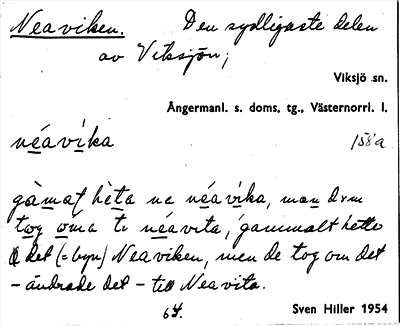 Neaviken. Den sydligaste delen
av Viksjön;
Viksjö sn.
Ångermanl. s. doms. tg., Västernorrl. l.
néavíka 158a
gàmał hèta na néavíka, man
tog oma ti néavita, gammalt hette
det (= byn) Neaviken, men de tog om det
- ändrade det - till Neavita.
64. Sven Hiller 1954